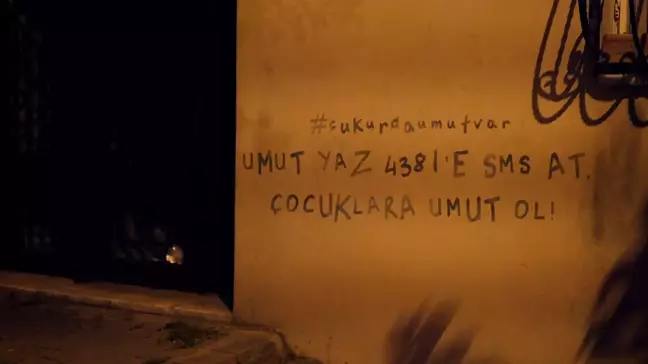 #çukurdaumutvar
UMUT YAZ 4381'E SMS AT,
ÇOCUKLARA UMUT OL!